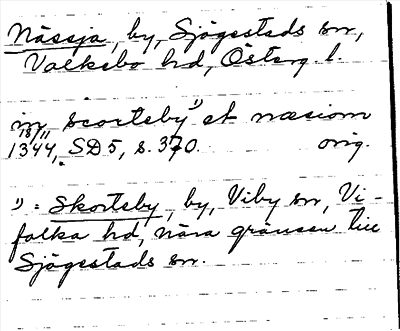 Nässja, by, Sjögestads sn,
Valkebo hd, Österg. l.
in scorteby ¹⁾ et næsiom
18/11
1344, SD 5, s. 370. orig.
¹⁾ = Skorteby, by, Viby sn, Vi-
folka hd, nära gränsen till
Sjögestads sn.